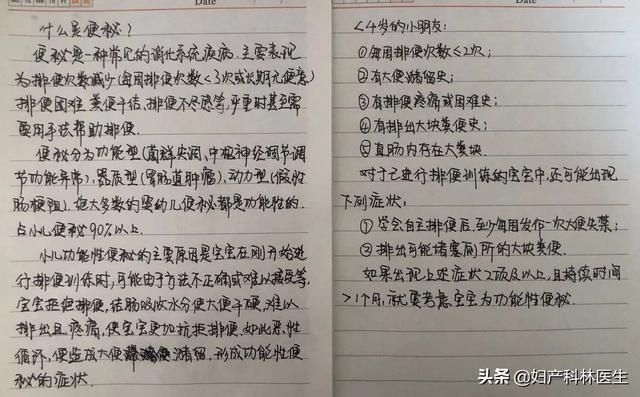 Date
什么是便秘？
便秘是一种常见的消化系统疾病，主要表现
为排便次数减少（每周排便次数<3次或长期无便意）
排便困难、粪便干结、排便不尽感等，严重时甚至需
要用手法帮助排便．
便秘分为功能型（菌群失调、中枢神经调节
节功能异常）、器质型（胃肠道肿瘤）、动力型（假性
肠梗阻）．绝大多数的婴幼儿便秘都是功能性的．
占小儿便秘90%以上．
小儿功能性便秘的主要原因是宝宝在刚开始进
行排便训练时，可能由于方法不正确或难以接受等，
宝宝拒绝排便，结肠吸收水分使大便干硬，难以
排出且疼痛，使宝宝更加抗拒排便．如此恶性
循环，便造成大便潴留，形成功能性便
秘的症状．
Date
<4岁的小朋友：
①每周排便次数≤2次；
②有大便潴留史；
③有排便疼痛或困难史；
④有排出大块粪便史；
⑤直肠内存在大粪块．
对于已进行排便训练的宝宝中，还可能出现
下列症状：
①学会自主排便后，至少每周发作一次大便失禁；
②排出可能堵塞厕所的大块粪便．
如果出现上述症状2项及以上，且持续时间
>1个月，就要考虑宝宝为功能性便秘．
头条 @妇产科林医生